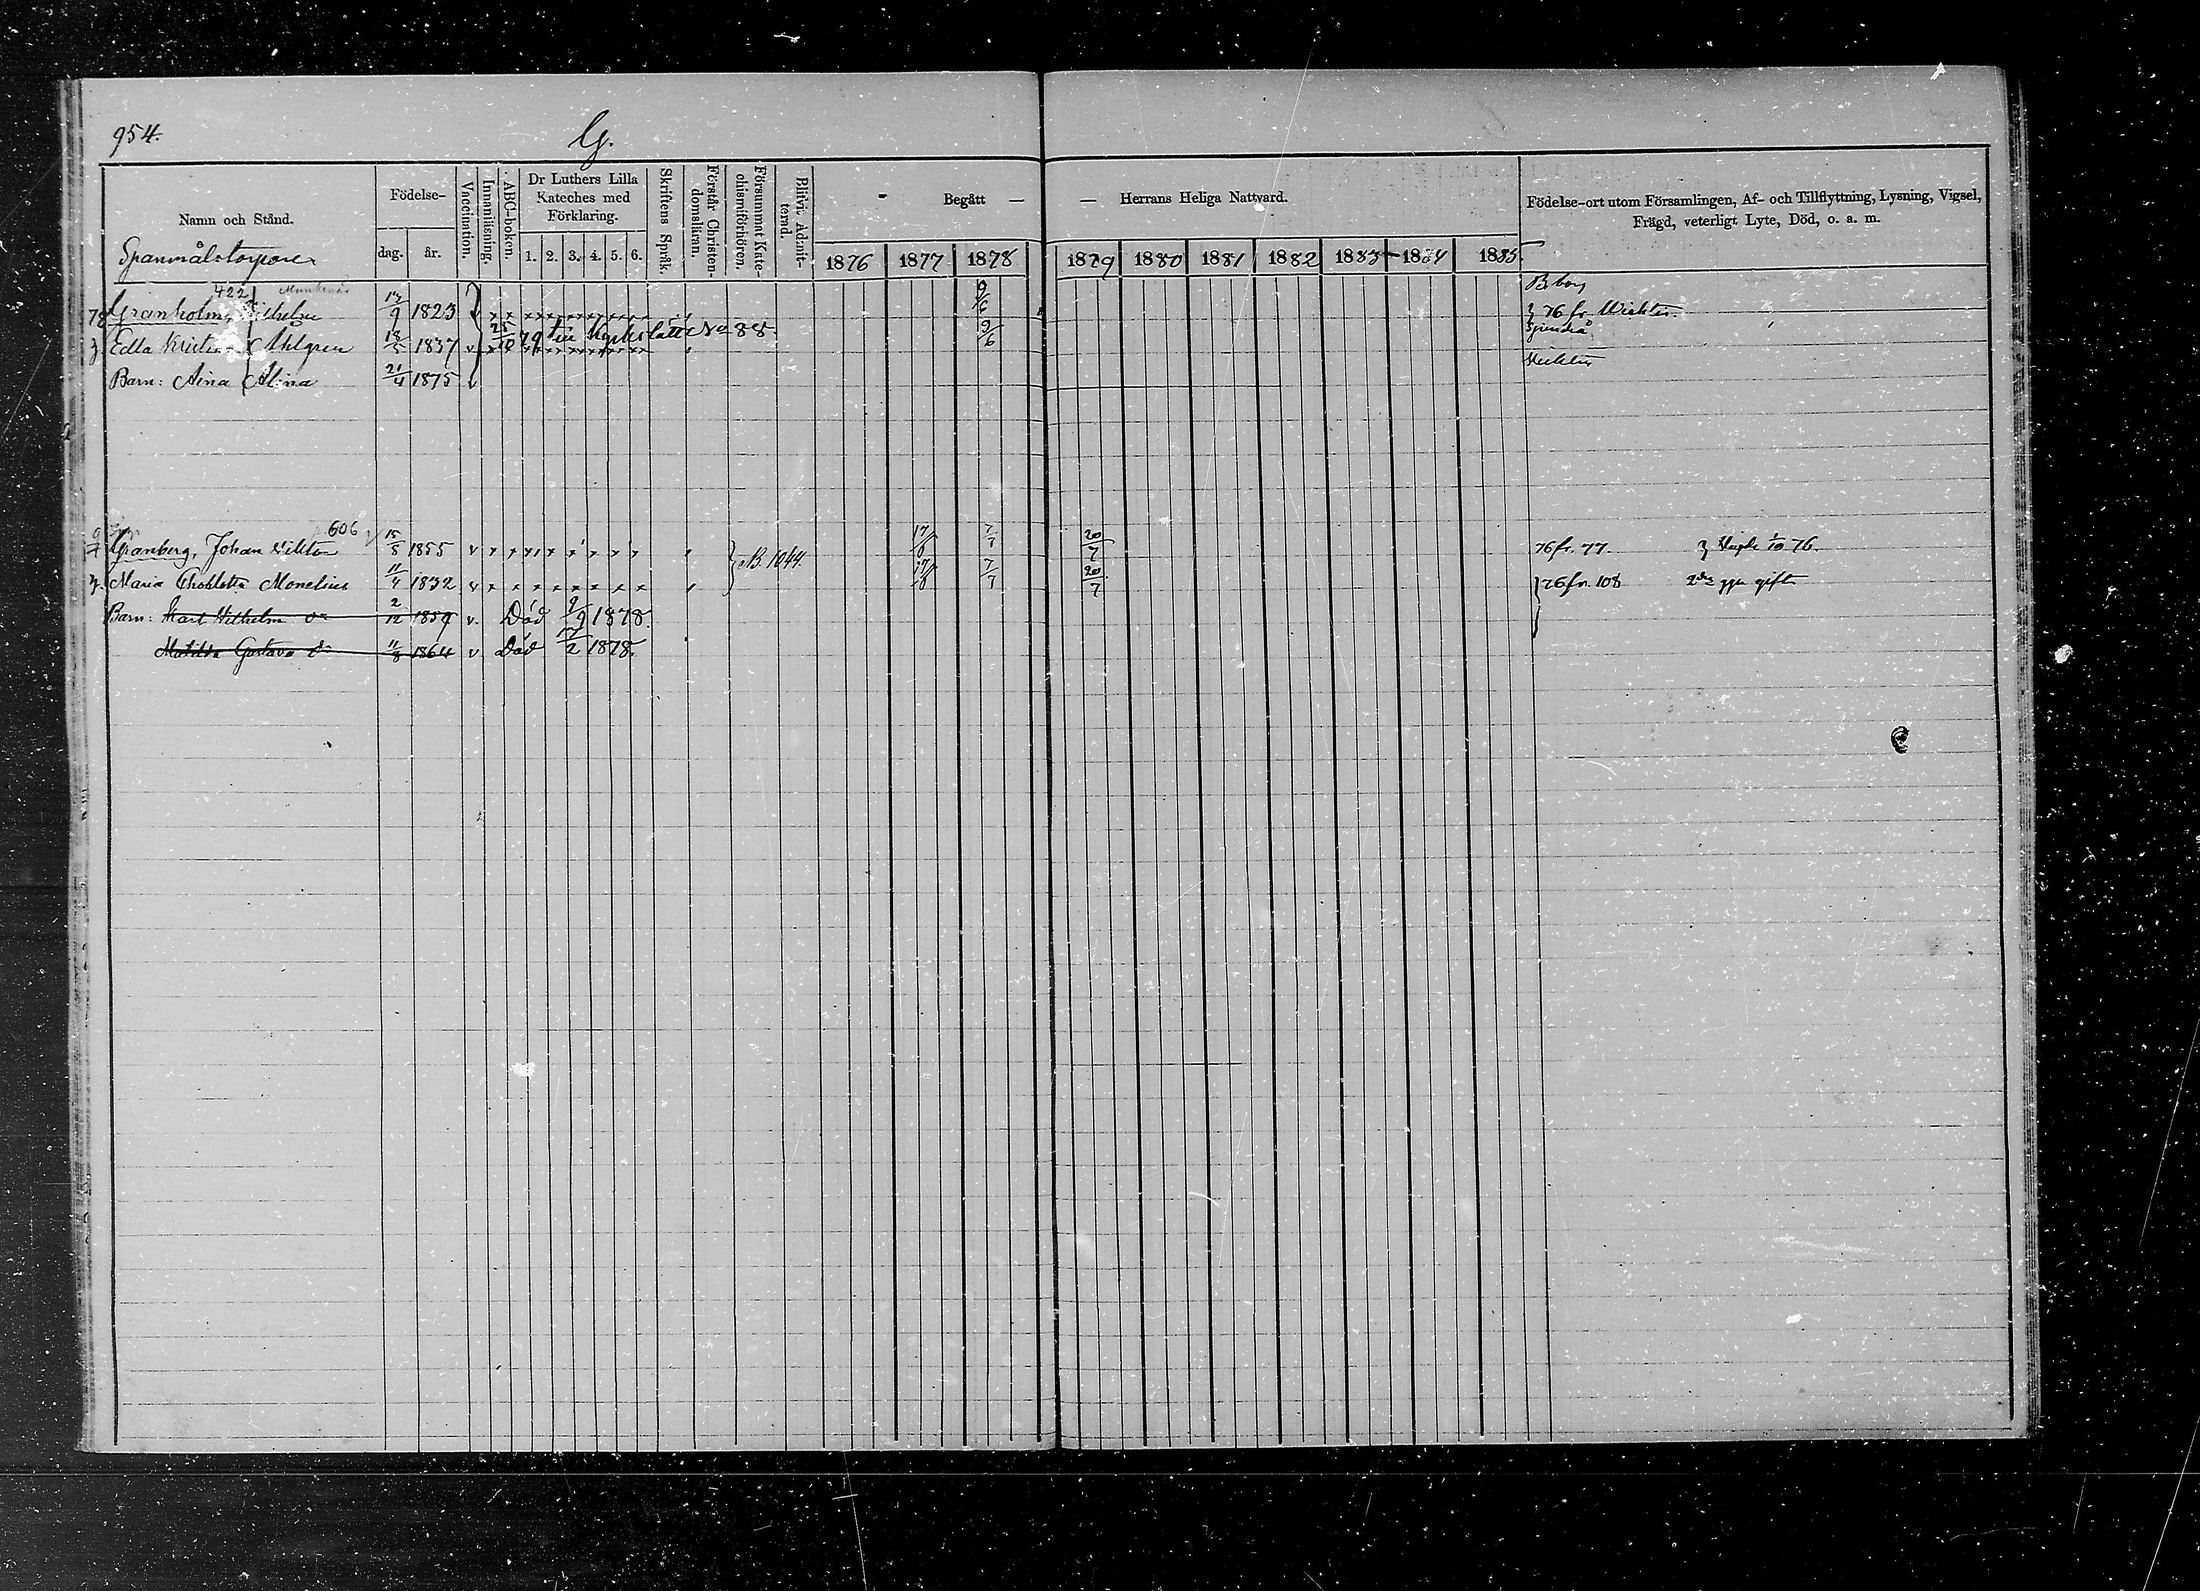 954. G.
Namn och Stånd.
Födelse-
dag. år.
Vaccination.
Innanläsning.
ABC-boken.
Dr Luthers Lilla Kateches med Förklaring.
1. 2. 3. 4. 5. 6.
Skriftens Språk.
Förstår Christendomsläran.
Försummat Katechismiförhören.
Blifvit Admitterad.
Begått — — Herrans Heliga Nattvard.
1876 1877 1878 1879 1880 1881 1882 1883 1884 1885.
Födelse-ort utom Församlingen, Af- och Tillflyttning, Lysning, Vigsel,
Frägd, veterligt Lyte, Död, o. a. m.
422
Granholm 17/9 1823 9/6 76 fr.
Edla Ahlgren 1837 25/10 79 No 88 9/6
Barn: Aina Alina 21/4 1875
606
Granberg, Johan Viktor 15/5 1855 B. 1044. 17/6 7/7 20/7 76 fr. 77. 76.
Maria Monelius 11/4 1832 17/6 7/7 20/7 76 fr. 108 gift
Barn: Karl Wilhelm 2/12 1859 v. Död 9/9 1878.
Matilda Gustava 11/8 1864 v Död 17/2 1878.